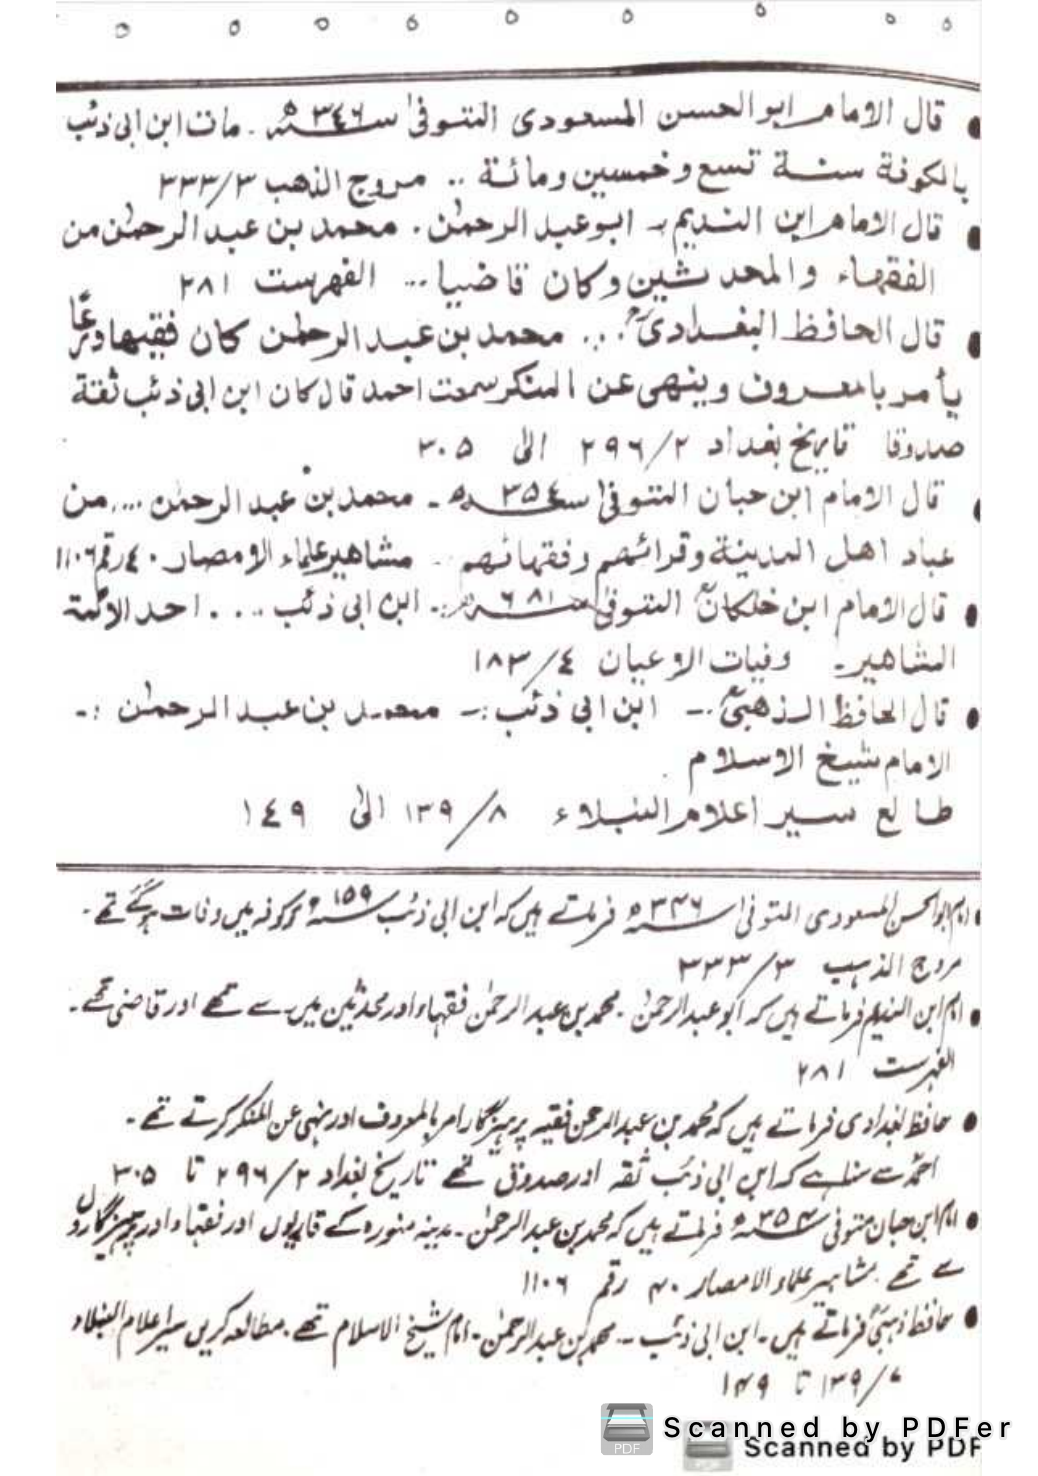 قال الامام ابو الحسن المسعودی المتوفیٰ سنة ٣٤٦ھ . مات ابن ابی ذئب
بالکوفة سنة تسع وخمسین ومائة .. مروج الذهب ٣/٣٣٣
قال الامام ابن النديم ـ ابو عبد الرحمٰن . محمد بن عبد الرحمٰن من
الفقهاء والمحدثین وکان قاضیا ... الفهرست ٢٨١
قال الحافظ البغدادیؒ ... محمد بن عبد الرحمٰن کان فقیها ورعًا
یأمر بالمعروف وینهی عن المنکر سمعت احمد قال کان ابن ابی ذئب ثقة
صدوقا تاریخ بغداد ٢/٢٩٦ الیٰ ٣٠٥
قال الامام ابن حبان المتوفیٰ سنة ٣٥٤ھ ـ محمد بن عبد الرحمٰن ... من
عباد اهل المدینة وقرائهم وفقهائهم .. مشاهیر علماء الامصار ١٤٠ رقم ١١٠٦
قال الامام ابن خلکانؒ المتوفیٰ سنة ٦٨١ھ :ـ ابن ابی ذئب ... احد الائمة
المشاهیر ـ وفیات الاعیان ٤/١٨٣
قال الحافظ الذهبیؒ :ـ ابن ابی ذئب :ـ محمد بن عبد الرحمٰن :ـ
الامام شیخ الاسلام .
طالع سیر اعلام النبلاء ٨/١٣٩ الیٰ ١٤٩
امام ابوالحسن المسعودی المتوفیٰ سنة ٣٤٦ھ فرماتے ہیں کہ ابن ابی ذئب سنة ١٥٩ھ کو کوفہ میں وفات ہوگئے تھے ۔
مروج الذہب ٣/٣٣٣
امام ابن الندیم فرماتے ہیں کہ ابو عبد الرحمٰن ۔ محمد بن عبد الرحمٰن فقہاء اور محدثین میں سے تھے اور قاضی تھے ۔
الفہرست ٢٨١
حافظ بغدادی فرماتے ہیں کہ محمد بن عبد الرحمن فقیہ پرہیزگار امر بالمعروف اور نہی عن المنکر کرتے تھے ۔
احمدؒ سے سنا ہے کہ ابن ابی ذئب ثقہ اور صدوق تھے تاریخ بغداد ٢/٢٩٦ تا ٣٠٥
امام ابن حبان متوفی سنة ٣٥٤ھ فرماتے ہیں کہ محمد بن عبد الرحمٰن ۔ مدینہ منورہ کے قاریوں اور فقہاء اور پرہیزگاروں
سے تھے ۔ مشاہیر علماء الامصار ١٤٠ رقم ١١٠٦
حافظ ذہبیؒ فرماتے ہیں ۔ ابن ابی ذئب ۔۔ محمد بن عبد الرحمٰن ۔ امام شیخ الاسلام تھے ۔ مطالعہ کریں سیر اعلام النبلاء
١٣٩ تا ١٤٩
Scanned by PDFer
Scanned by PDF